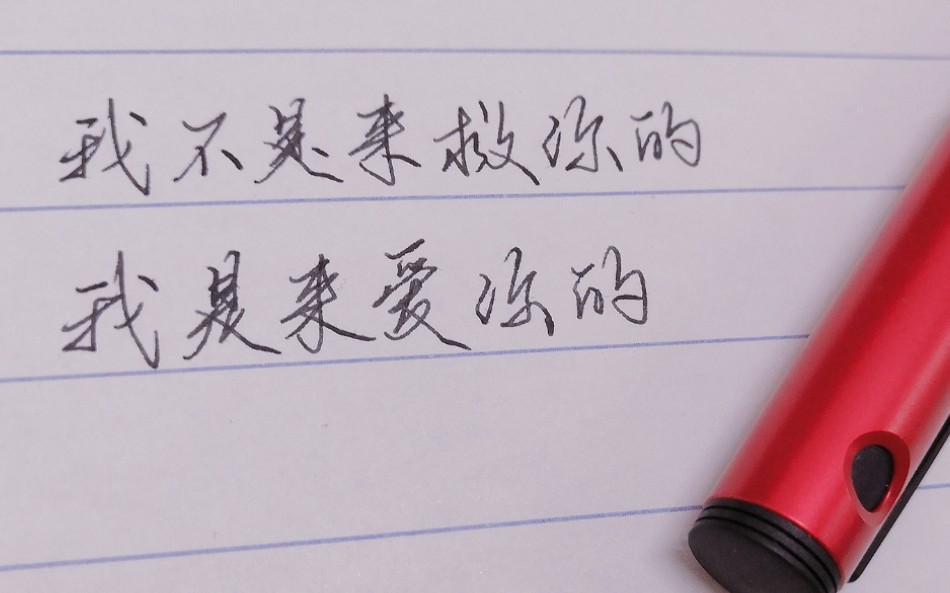 我不是来救你的
我是来爱你的